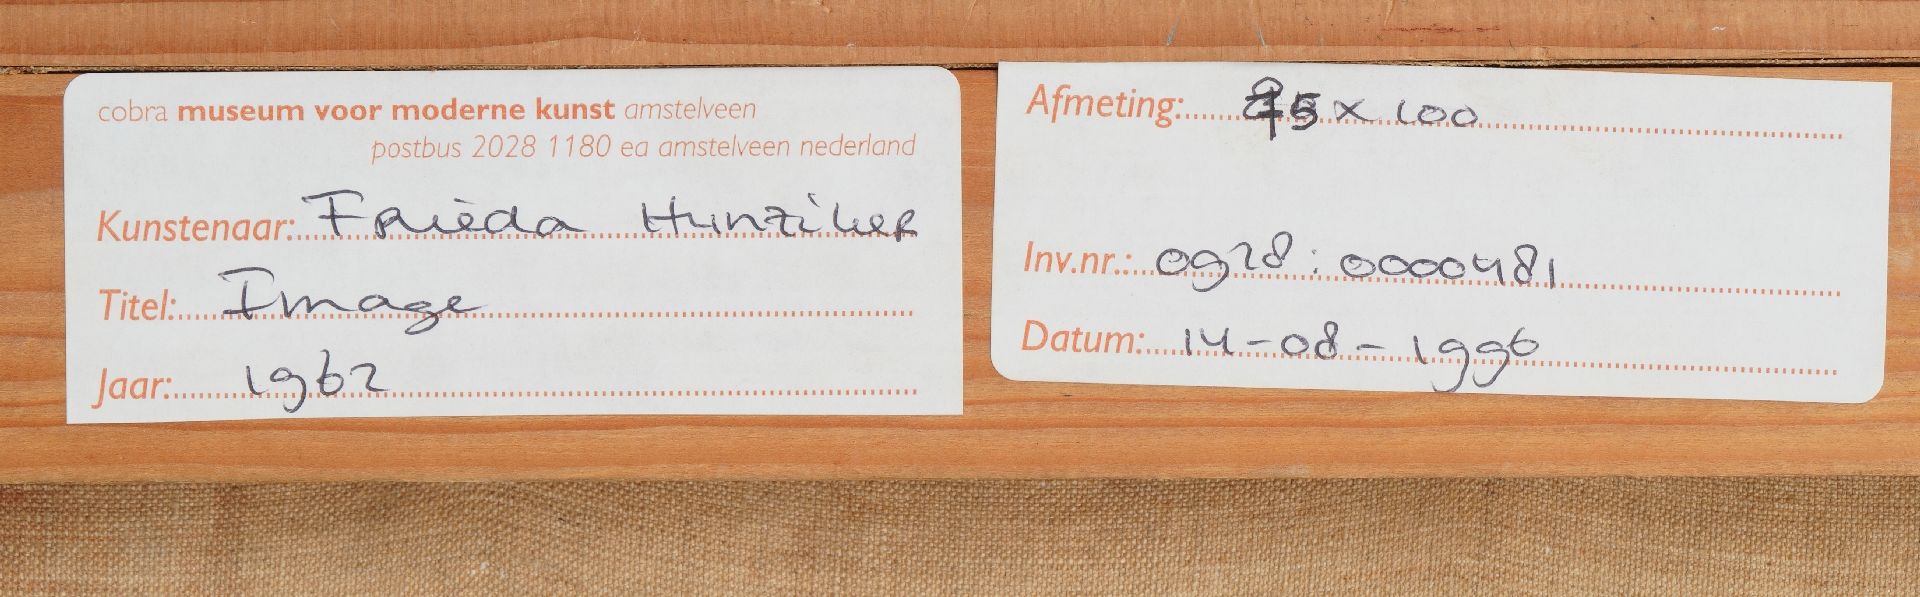 cobra museum voor moderne kunst amstelveen
postbus 2028 1180 ea amstelveen nederland
Kunstenaar: Frieda Hunziker
Titel: Image
Jaar: 1962
Afmeting: 75 x 100
Inv.nr.: 0928:0000481
Datum: 14-08-1996